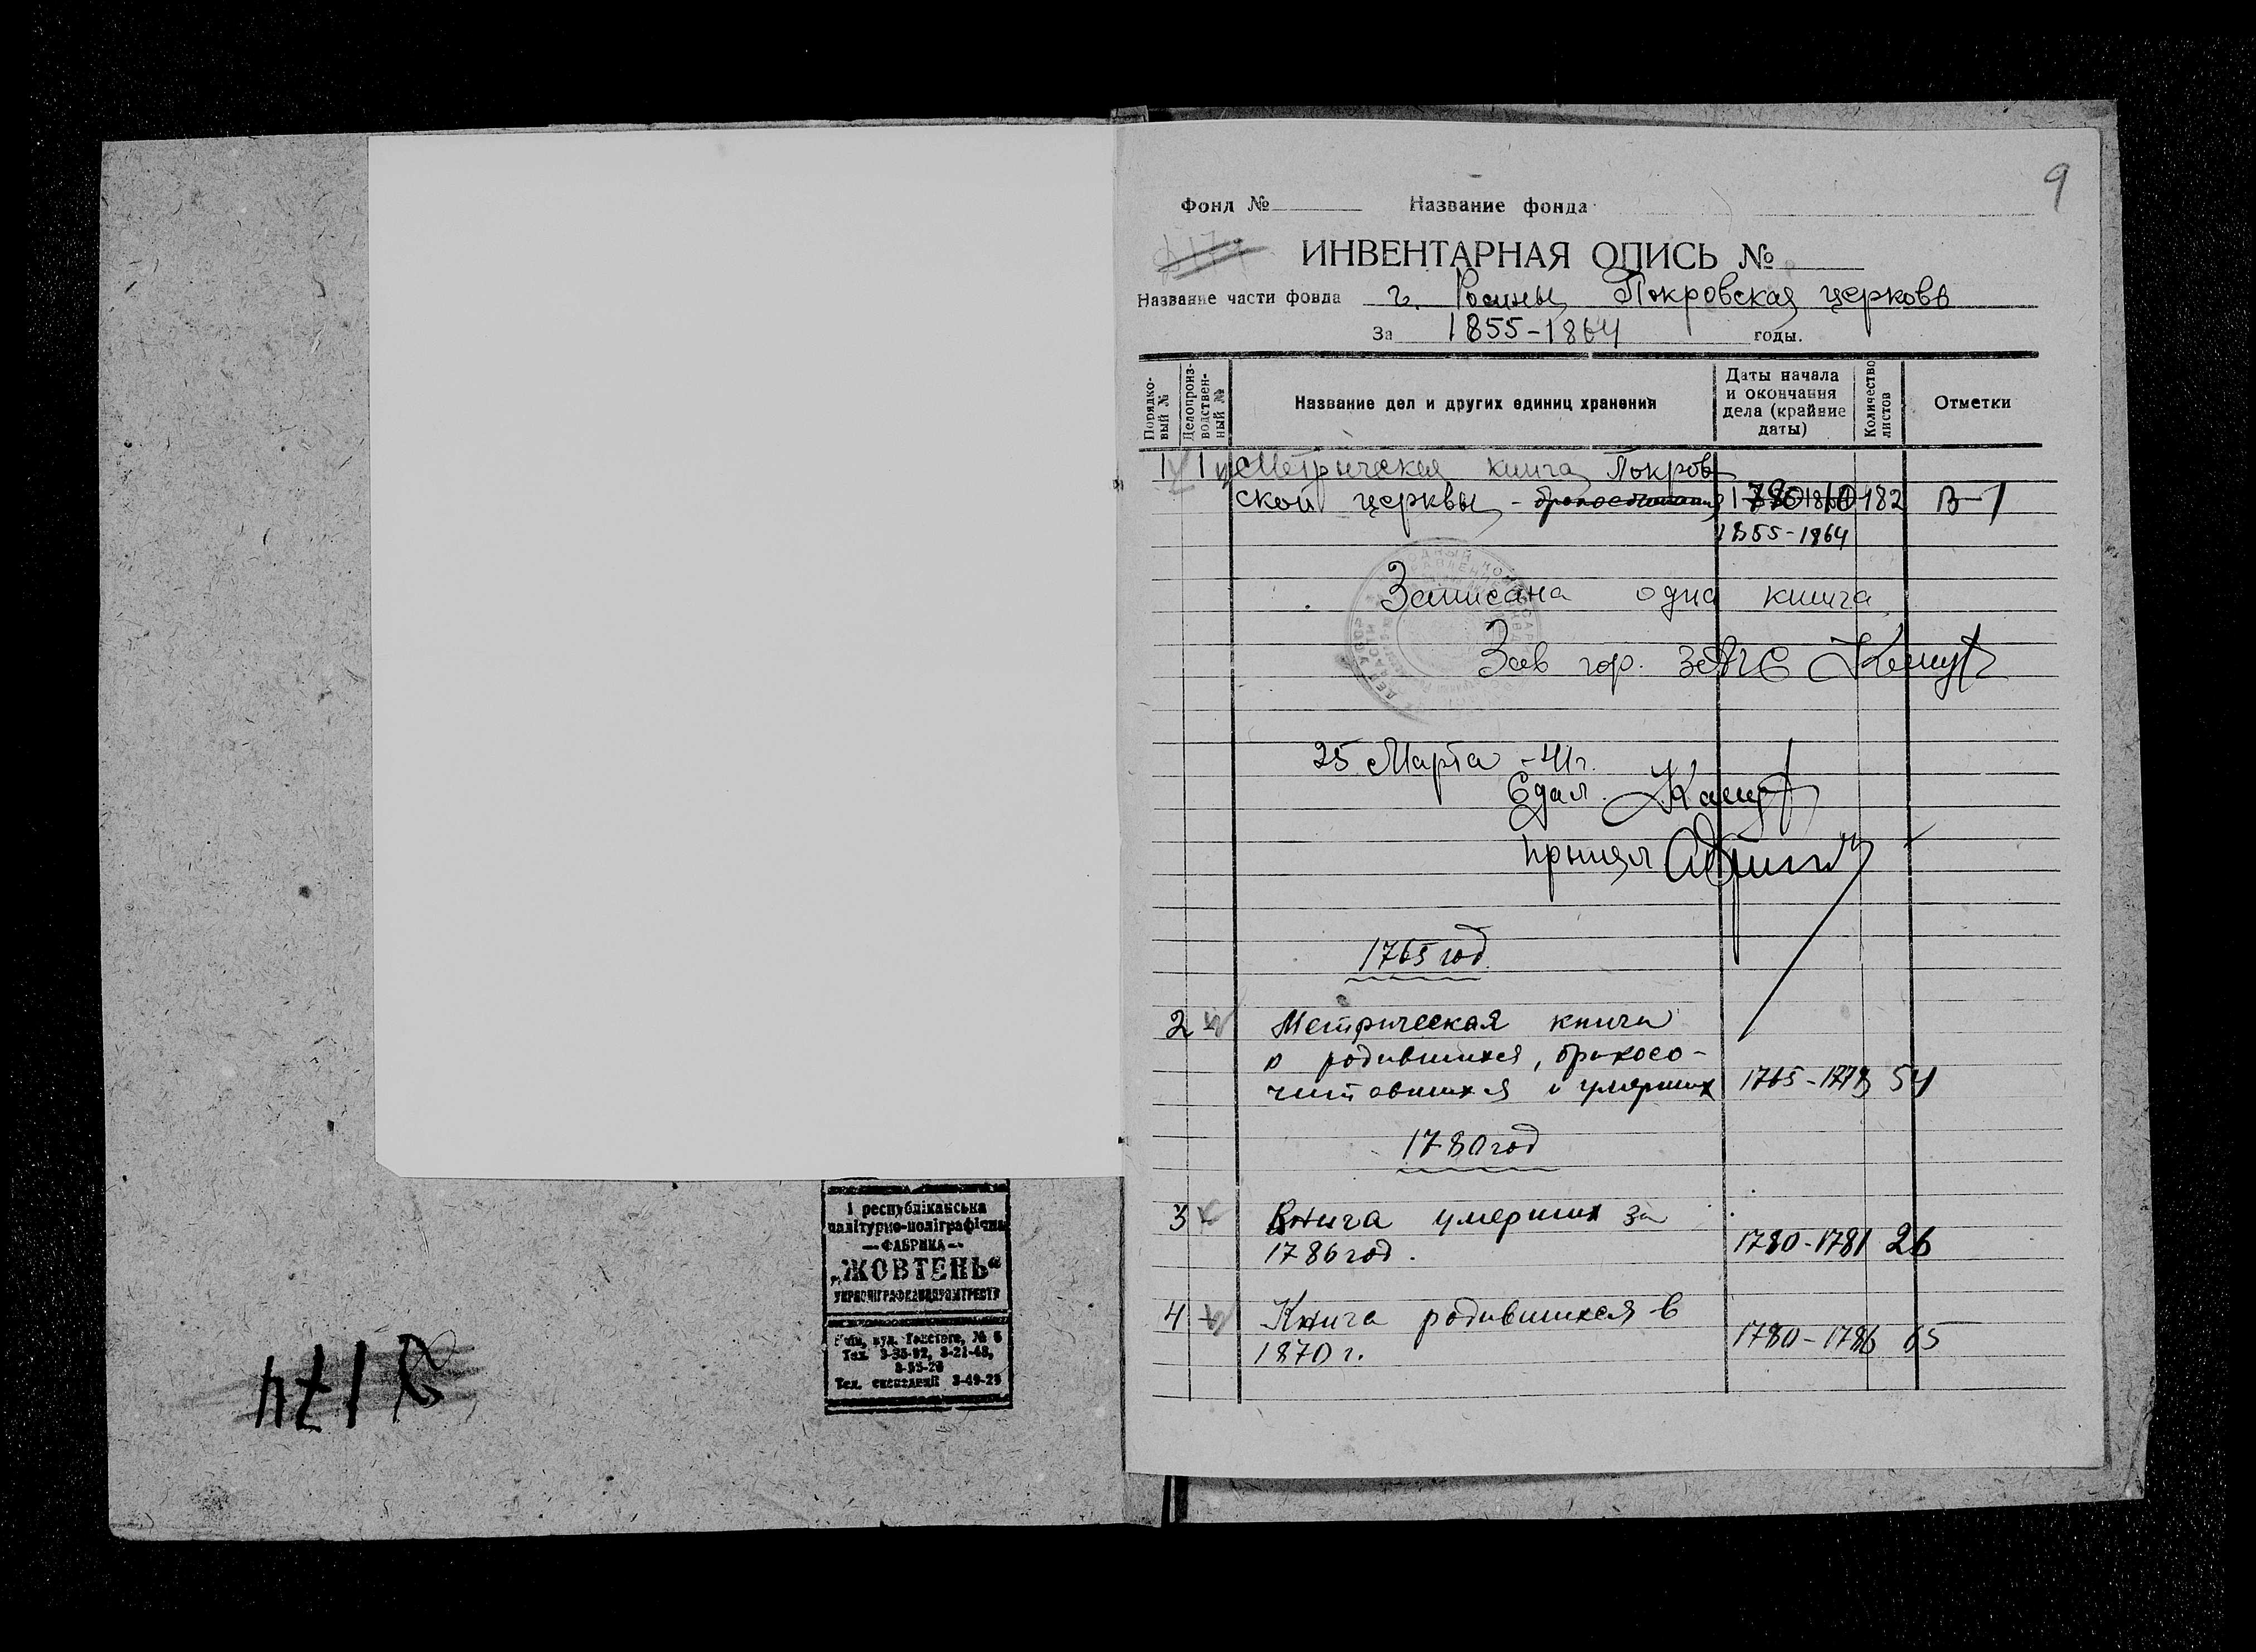 9
Фонд № Название фонда
ИНВЕНТАРНАЯ ОПИСЬ №
Название части фонда г. Ромны Покровская церковь
За 1855-1864 годы.
Порядковый №
Делопроизводственный №
Название дел и других единиц хранения
Даты начала
и окончания
дела (крайние
даты)
Количество
листов
Отметки
1 1 Метрическая книга Покров
ской церквы - 182 В-1
1855-1864
Записана одна книга
Зав гор. ЗАГС
25 Марта -41г.
Сдал
принял
1765 год
2 Метрическая книга
о родившихся, бракосо-
читавшихся и умерших 1765-1773 54
1780 год
3 Книга умерших за
1786 год. 1780-1781 26
4 Книга родившихся в
1870 г. 1780-1786 65
І республіканська
палітурно-поліграфічна
— ФАБРИКА —
„ЖОВТЕНЬ"
№ 6
Тел. 3-35-92, 3-21-48,
3-55-20
Тел. експедиції 3-49-29
174